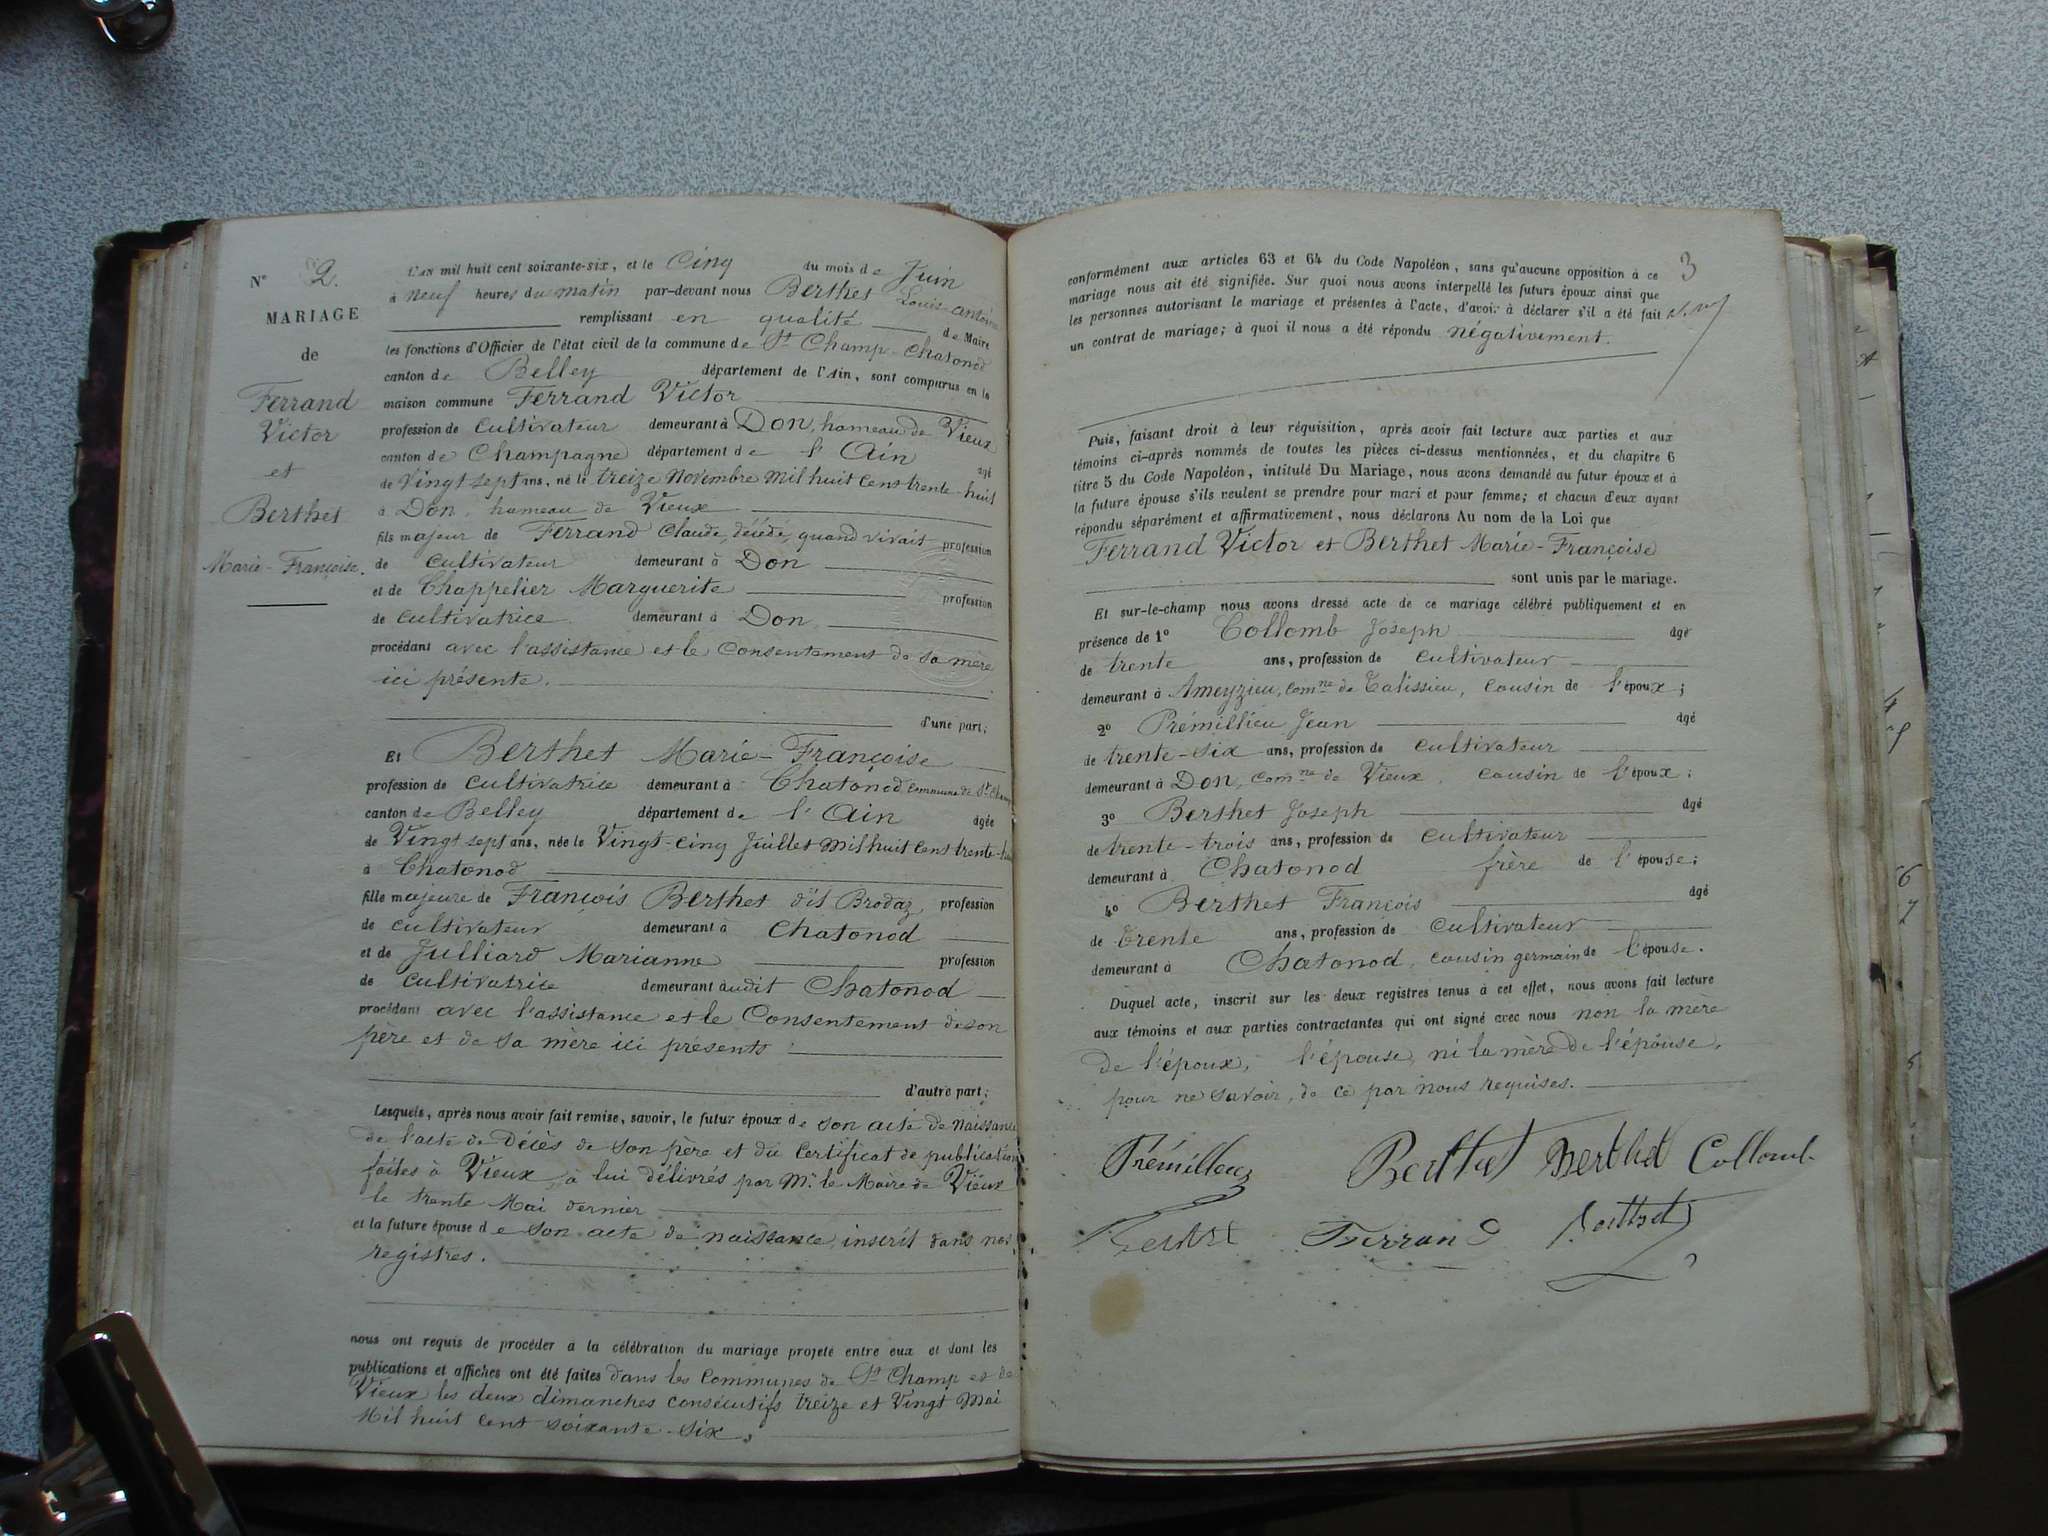 N° 2.
MARIAGE
de
Ferrand
Victor
et
Berthet
Marie-Françoise.
L'AN mil huit cent soixante-six, et le Cinq du mois de Juin
à neuf heures du matin par-devant nous Berthet Louis-Antoine
remplissant en qualité de Maire
les fonctions d'Officier de l'état civil de la commune de St Champ-Chatonod
canton de Belley département de l'Ain, sont comparus en la
maison commune Ferrand Victor
profession de cultivateur demeurant à Don, hameau de Vieux
canton de Champagne département de l'Ain âgé
de Vingt sept ans, né le treize Novembre mil huit cent trente-huit
à Don, hameau de Vieux
fils majeur de Ferrand Claude, décédé, quand vivait profession
de cultivateur demeurant à Don
et de Chappelier Marguerite profession
de cultivatrice demeurant à Don
procédant avec l'assistance et le consentement de sa mère
ici présente.
d'une part;
Et Berthet Marie-Françoise
profession de cultivatrice demeurant à Chatonod commune de St Champ
canton de Belley département de l'Ain âgée
de Vingt sept ans, née le Vingt-cinq Juillet mil huit cent trente-huit
à Chatonod
fille majeure de François Berthet dit Brodaz, profession
de cultivateur demeurant à Chatonod
et de Julliard Marianne profession
de cultivatrice demeurant audit Chatonod
procédant avec l'assistance et le Consentement de son
père et de sa mère ici présents
d'autre part;
Lesquels, après nous avoir fait remise, savoir, le futur époux de son acte de naissance
de l'acte de Décès de son père et du certificat de publication
faites à Vieux, à lui délivrés par Mr. le Maire de Vieux
le trente Mai dernier
et la future épouse de son acte de naissance inscrit dans nos
registres.
nous ont requis de procéder à la célébration du mariage projeté entre eux et dont les
publications et affiches ont été faites dans les Communes de St Champ et de
Vieux les deux dimanches consécutifs treize et Vingt Mai
Mil huit cent soixante-six.
3
conformément aux articles 63 et 64 du Code Napoléon, sans qu'aucune opposition à ce
mariage nous ait été signifiée. Sur quoi nous avons interpellé les futurs époux ainsi que
les personnes autorisant le mariage et présentes à l'acte, d'avoir à déclarer s'il a été fait
un contrat de mariage; à quoi il nous a été répondu négativement.
Puis, faisant droit à leur réquisition, après avoir fait lecture aux parties et aux
témoins ci-après nommés de toutes les pièces ci-dessus mentionnées, et du chapitre 6
titre 5 du Code Napoléon, intitulé Du Mariage, nous avons demandé au futur époux et à
la future épouse s'ils veulent se prendre pour mari et pour femme; et chacun d'eux ayant
répondu séparément et affirmativement, nous déclarons Au nom de la Loi que
Ferrand Victor et Berthet Marie-Françoise
sont unis par le mariage.
Et sur-le-champ nous avons dressé acte de ce mariage célébré publiquement et en
présence de 1° Collomb Joseph âgé
de trente ans, profession de cultivateur
demeurant à Ameyzieu, comne de Talissieu, cousin de l'époux;
2° Prémillieu Jean âgé
de trente-six ans, profession de cultivateur
demeurant à Don, comne de Vieux, cousin de l'époux;
3° Berthet Joseph âgé
de trente-trois ans, profession de cultivateur
demeurant à Chatonod frère de l'épouse;
4° Berthet François âgé
de trente ans, profession de cultivateur
demeurant à Chatonod, cousin germain de l'épouse.
Duquel acte, inscrit sur les deux registres tenus à cet effet, nous avons fait lecture
aux témoins et aux parties contractantes qui ont signé avec nous non la mère
de l'époux, l'épouse, ni la mère de l'épouse,
pour ne savoir, de ce par nous requises.
Prémillieu Berthet Berthet Collomb
Berthet Ferrand Berthet